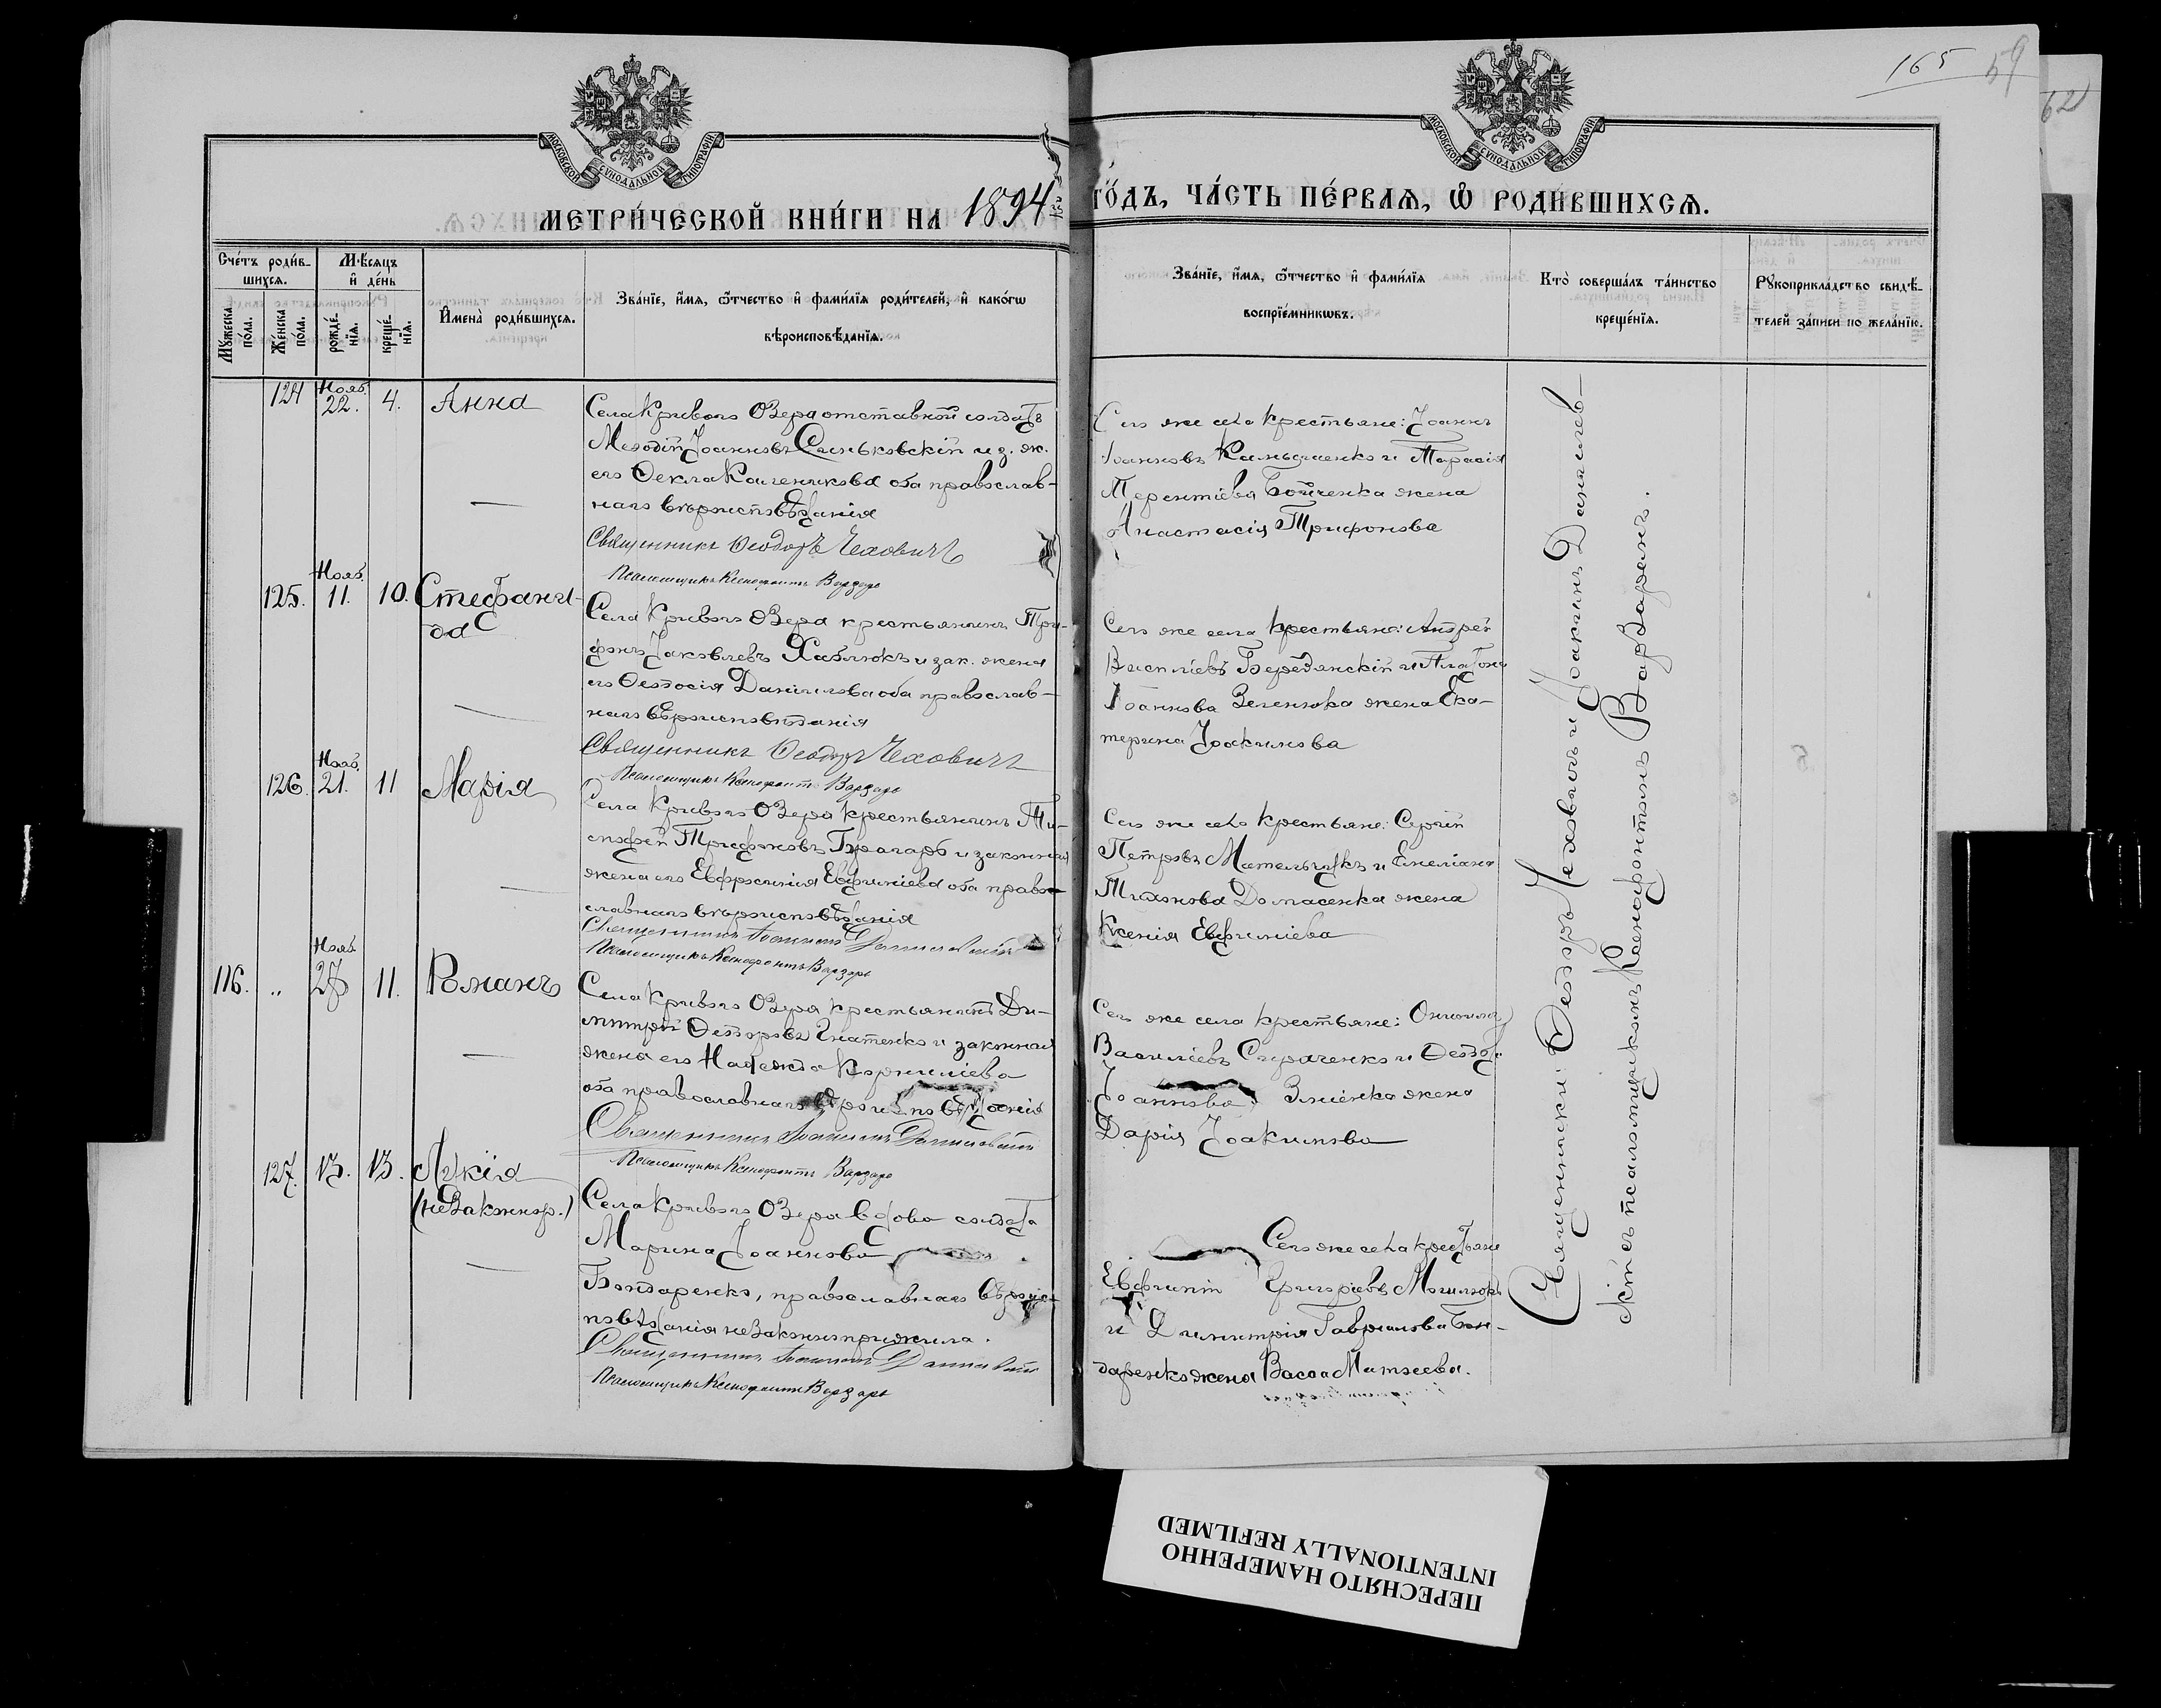 165 59
62
МОСКОВСКОЙ СѴНОДАЛЬНОЙ ТИПОГРАФІИ
МОСКОВСКОЙ СѴНОДАЛЬНОЙ ТИПОГРАФІИ
МЕТРИ́ЧЕСКОЙ КНИ́ГИ НА 1894 ГО́ДЪ, ЧА́СТЬ ПЕ́РВАѦ, Ѿ РОДИ́ВШИХСѦ.
Сче́тъ роди́в-
шихсѧ.
Мꙋжеска по́ла.
Же́нска по́ла.
Мѣ́сѧцъ
и҆ де́нь
рожде́нїѧ.
креще́нїѧ.
И҆мена̀ роди́вшихсѧ.
Зва́нїе, и҆́мѧ, ѻ҆́тчество и҆ фами́лїѧ роди́телей, и҆ како́гѡ
вѣроисповѣ́данїѧ.
Зва́нїе, и҆́мѧ, ѻ҆́тчество и҆ фами́лїѧ
воспрїе́мникѡвъ.
Кто̀ соверша́лъ та́инство
креще́нїѧ.
Рꙋкоприкла́дство свидѣ́-
телей за́писи по жела́нїю.
124 Нояб. 22. 4. Анна
Села Криваго Озера отставной солдатъ
Меѳодій Іоанновъ Синьковскій и з. ж.
его Ѳекла Каленикова оба православ-
наго вѣроисповѣданія
Священникъ Ѳеодоръ Чеховичъ
Псаломщикъ Ксенофонтъ Варзарь
Сего же села крестьяне: Іоаннъ
Іоанновъ и Тарасія
Терентіева Бойченка жена
Анастасія Трифонова
125. Нояб. 11. 10. Стефани-
да
Села Криваго Озера крестьянинъ Три-
фонъ Іаковлевъ Хаблюкъ и зак. жена
его Ѳеодосія Даніилова оба православ-
наго вѣроисповѣданія
Священникъ Ѳеодоръ Чеховичъ
Псаломщикъ Ксенофонтъ Варзарь
Сего же села крестьяне: Андрей
Василіевъ Бередянскій и Платона
Іоаннова Зеленюка жена Ека-
терина Іоакимова
126. Нояб. 21. 11 Марія
Села Криваго Озера крестьянинъ Ти-
моѳей Трифоновъ Брагарь и законная
жена его Евфросинія Евфиміева оба право-
славнаго вѣроисповѣданія
Священникъ Іоакимъ Данилевичъ
Псаломщикъ Ксенофонтъ Варзарь
Сего же села крестьяне: Сергій
Петровъ Мательчукъ и Емеліана
Тихонова Домасенка жена
Ксенія Евфиміева
116. " Нояб. 27 11. Романъ
Села Криваго Озера крестьянинъ Ди-
митрій Ѳеодоровъ Гнатенко и законная
жена его Надежда Корниліева
оба православнаго вѣроисповѣданія
Священникъ Іоакимъ Данилевичъ
Псаломщикъ Ксенофонтъ Варзарь
Сего же села крестьяне: Онисимъ
Василіевъ и Ѳеодора
Іоаннова Зміенка жена
Дарія Іоакимова
127. 13. 13. Лукія
(незаконнор.)
Села Криваго Озера вдова солдата
Марина Іоаннова
Бондаренко, православнаго вѣроис-
повѣданія незаконноприжила.
Священникъ Іоакимъ Данилевичъ
Псаломщикъ Ксенофонтъ Варзарь
Сего же села крестьяне
Евфимій Григоріевъ Могилюкъ
и Димитрія Гавриилова Бон-
даренко жена Васса Матѳеева.
Священники: Ѳеодоръ Чеховичъ и Іоакимъ Данилев-
ичъ съ псаломщикомъ Ксенофонтомъ Варзаремъ.
ПЕРЕСНЯТО НАМЕРЕННО
INTENTIONALLY REFILMED